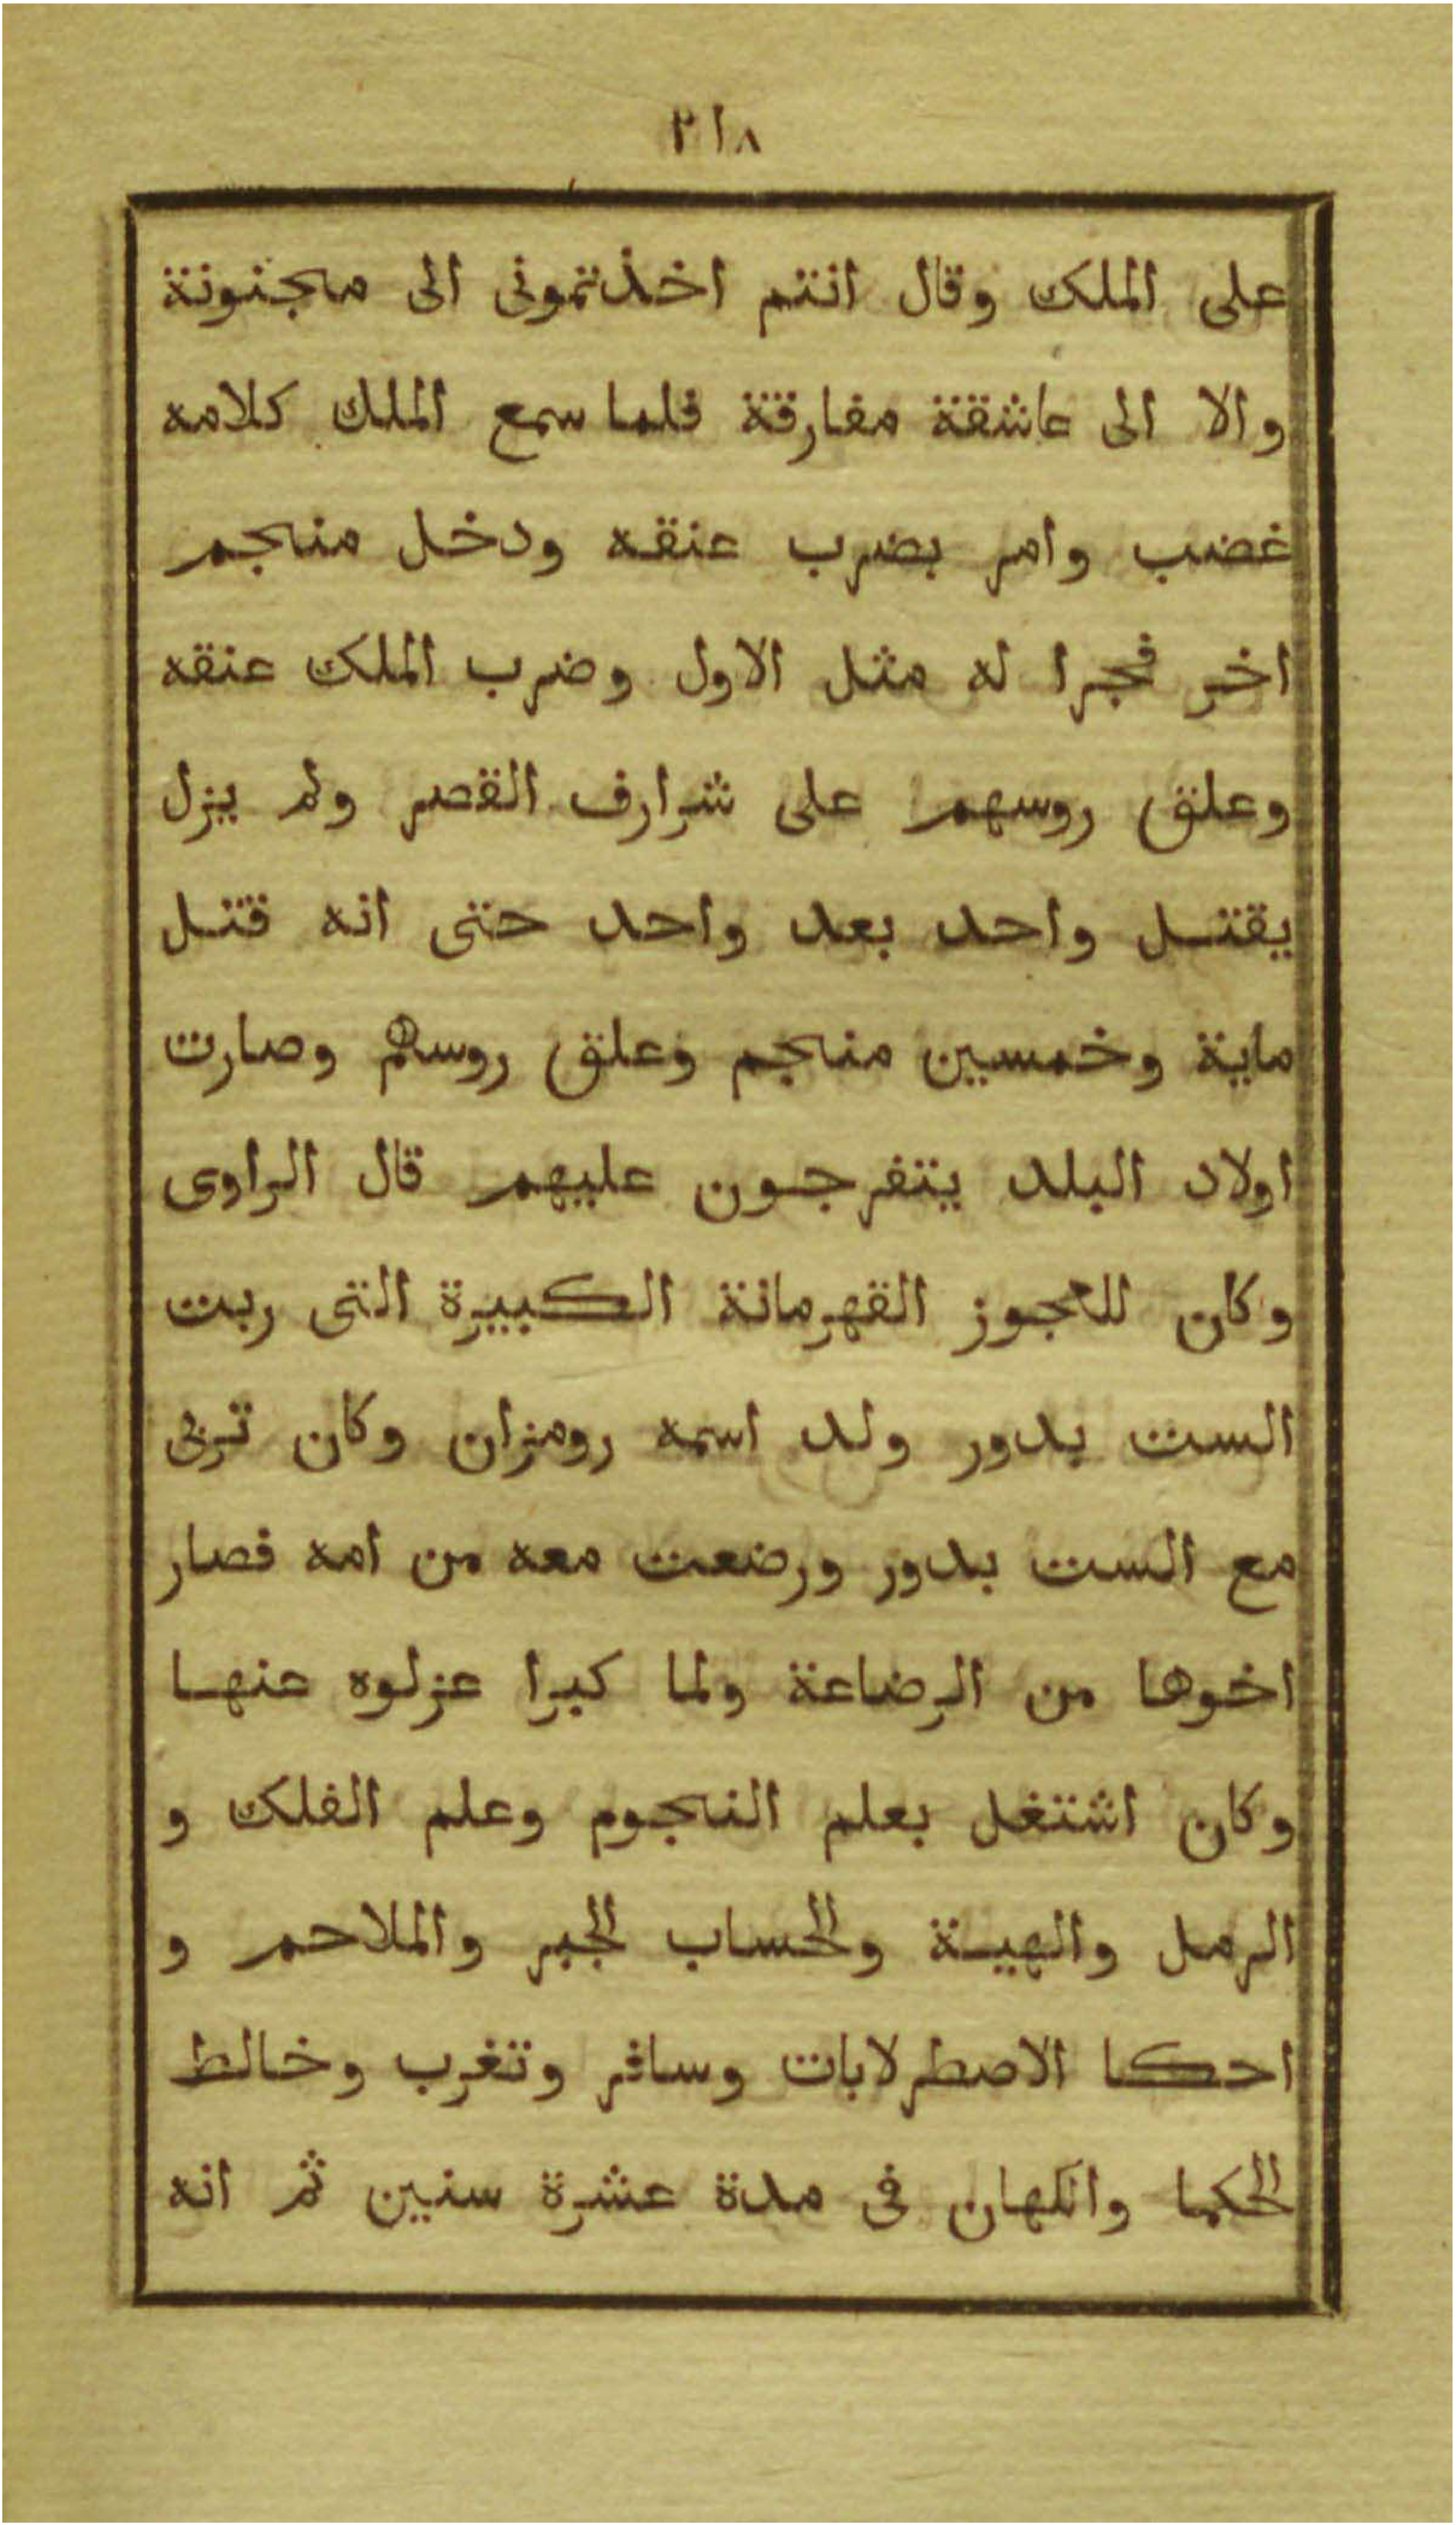 ٢١٨
على الملك وقال انتم اخذتمونى الى مجنونة
والا الى عاشقة مفارقة فلما سمع الملك كلامه
غضب وامر بضرب عنقه ودخل منجم
اخر فجرا له مثل الاول وضرب الملك عنقه
وعلق روسهم على شرارف القصر ولم يزل
يقتل واحد بعد واحد حتى انه قتل
ماية وخمسين منجم وعلق روسهم وصارت
اولاد البلد يتفرجون عليهم قال الراوى
وكان للعجوز القهرمانة الكبيرة التى ربت
الست بدور ولد اسمه رومزان وكان تربى
مع الست بدور ورضعت معه من امه فصار
اخوها من الرضاعة ولما كبرا عزلوه عنها
وكان اشتغل بعلم النجوم وعلم الفلك و
الرمل والهيـة والحساب الجبر والملاحم و
احكا الاصطرلابات وسافر وتغرب وخالط
الحكما والكهان فى مدة عشرة سنين ثم انه